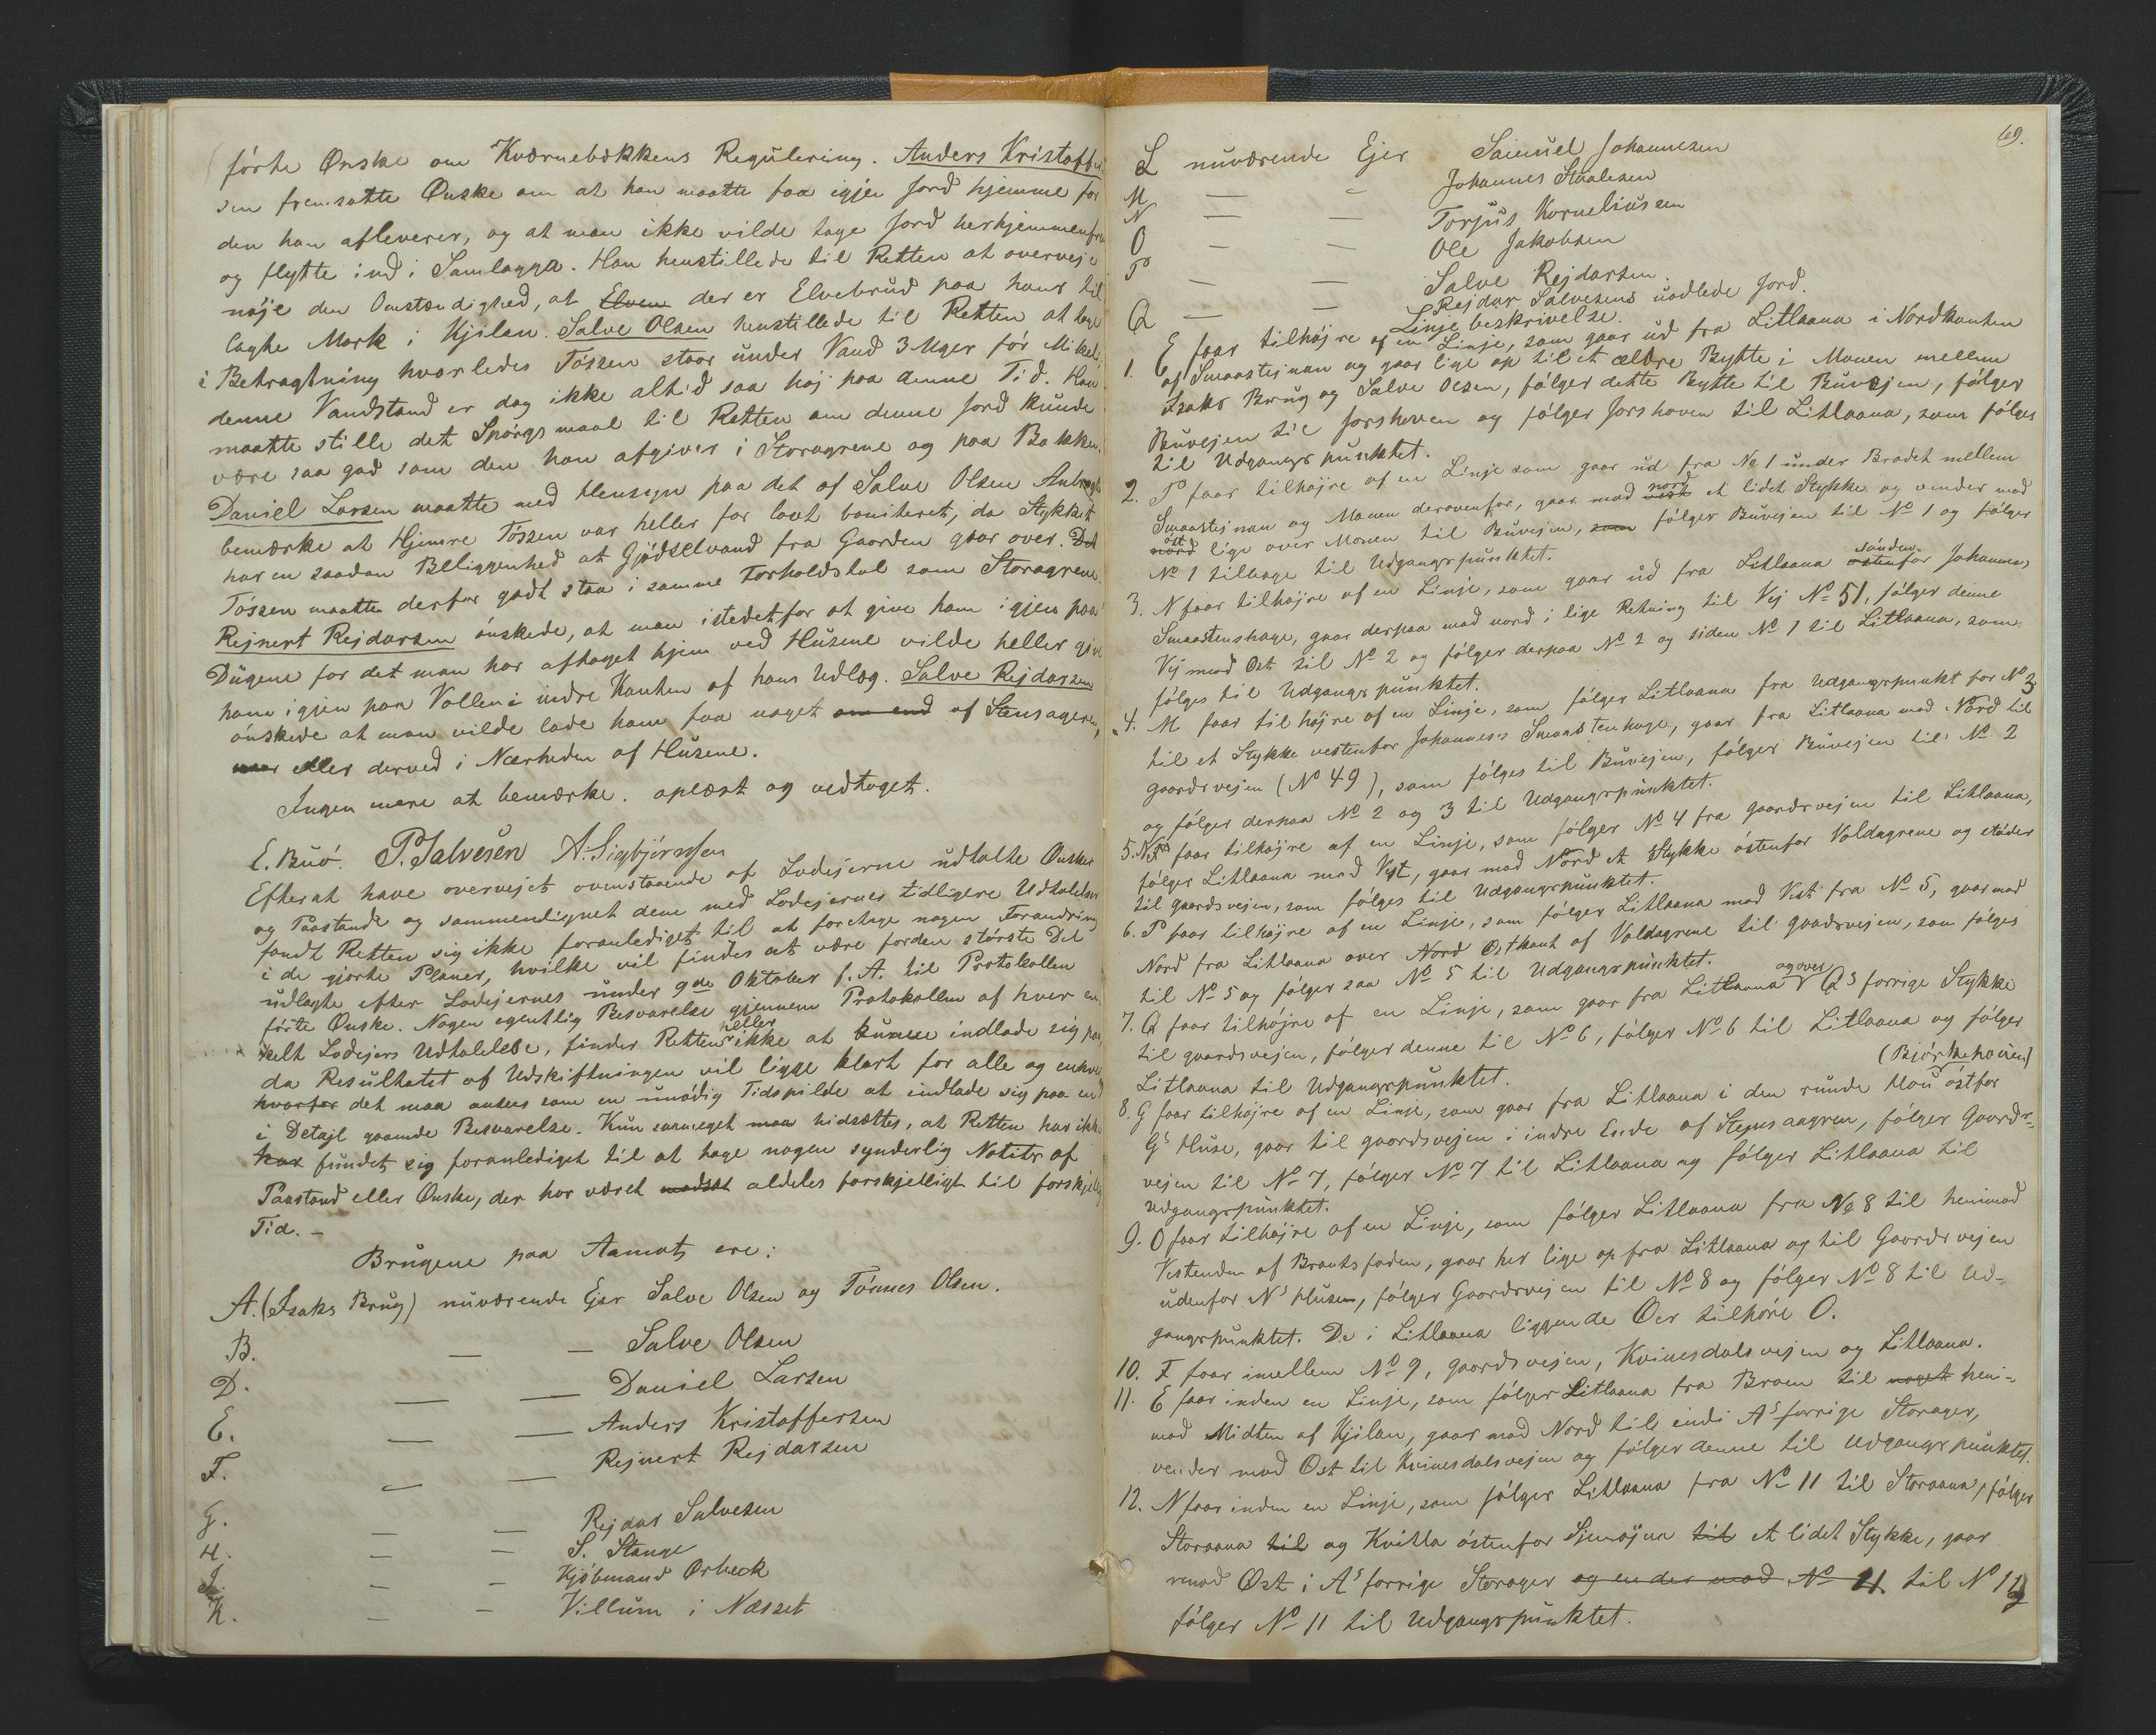 førte Ønske om Kværnebækkens Regulering. Anders Kristoffer
sen fremsatte Ønske om at han maatte faa igjen Jord hjemme for
den han afleverer, og at man ikke vilde tage Jord herhjemmenfra
og flytte ind i Samlagga. Han henstillede til Retten at overveje
nøje den Omstændighed, at Elven der er Elvebrud paa hans til
lagte Mark i Kjilan. Salve Olsen henstillede til Retten at tage
i Betragtning hvorledes Tøssen staar under Vand 3 Uger før Mikkeli
denne Vandstand er dog ikke altid saa høj paa denne Tid. Han
maatte stille det Spørgsmaal til Retten om denne Jord kunde
være saa god som den han afgiver i Storagrene og paa Bakken.
Daniel Larsen maatte med Hensyn paa det af Salve Olsen Anbragte
bemærke at Hjemre Tøssen var heller for lavt boniteret, da Stykket
har en saadan Beliggenhed at Gjødselvand fra Gaarden gaar over. Det
Tøssen maatte derfor godt staa i samme Forholdstal som Storagrene.
Rejnert Rejdarsen ønskede, at man istedetfor at give ham igjen paa
Dügene for det man har aftaget hjem ved Husene vilde heller give
ham igjen paa Vollen i indre Kanten af hans Udlæg. Salve Rejdarsen
ønskede at man vilde lade ham faa noget om end af Stensageren,
eller derved i Nærheden af Husene.
Ingen mere at bemærke. oplæst og vedtaget.
E. Buö. P. Salvesen A. Sigbjørnsen
Efter at have overvejet ovenstaaende af Lodejerne udtalte Ønsker
og Paastande og sammenlignet dem med Lodejernes tidligere Udtalelser
fandt Retten sig ikke foranlediget til at foretage nogen Forandring
i de gjorte Planer, hvilke vil findes at være forden største Del
udlagte efter Lodejernes under 9de Oktober f. A. til Protokollen
førte Ønske. Nogen egentlig Besvarelse gjennem Protokollen af hver en
kelt Lodejers Udtalelse, finder Retten heller ikke at kunne indlade sig paa
da Resultatet af Udskiftningen vil ligge klart for alle og enhver
hvorfor det maa ansees som en unødig Tidspilde at indlade sig paa en
i Detajl gaaende Besvarelse. Kun saameget maa hidsættes, at Retten har ikke
har fundet sig foranlediget til at tage nogen synderlig Notits af
Paastand eller Ønske, der har været modsat aldeles forskjelligt til forskjellig
Tid. –
Brugene paa Aamot ere:
A. (Isaks Brug) nuværende Ejer Salve Olsen og Tønnes Olsen.
B. — — Salve Olsen
D. — — Daniel Larsen
E. — — Anders Kristoffersen
F. — — Rejnert Rejdarsen
G. — — Rejdar Salvesen
H. — — S. Stange
I. — — Kjøbmand Orbeck
K. — — Villum i Næsset
69.
L nuværende Ejer Samuel Johannesen
M — — Johannes Staalesen
N — — Torjus Korneliussen
O — — Ole Jakobsen
P — — Salve Rejdarsen.
Q — — Rejdar Salvesens uodlede Jord.
Linjebeskrivelse.
1. E faar tilhøjre af en Linje, som gaar ud fra Litlaana i Nordkanten
af Smaastejnan og gaar lige op til et ældre Bytte i Monen mellem
Isaks Brug og Salve Olsen, følger dette Bytte til Buvejen, følger
Buvejen til Forshoven og følger Forshoven til Litlaana, som følges
til Udgangspunktet.
2. P faar tilhøjre af en Linje som gaar ud fra No 1 under Bradet mellem
Smaastejnan og Monen derovenfor, gaar mod vest nord et lidet Stykke og vender mod
nord øst lige over Monen til Buvejen, som følger Buvejen til No 1 og følger
No 1 tilbage til Udgangspunktet.
3. N faar tilhøjre af en Linje, som gaar ud fra Litlaana østenfor sønden Johannes
Smaastenshage, gaar derpaa mod nord i lige Retning til Vej No 51, følger denne
Vej mod Øst til No 2 og følger derpaa No 2 og siden No 1 til Litlaana, som
følges til Udgangspunktet.
4. M faar til højre af en Linje, som følger Litlaana fra Udgangspunkt for No 3
til et Stykke vestenfor Johannes's Smaastenhage, gaar fra Litlaana mod Nord til
Gaardsvejen (No 49), som følges til Buvejen, følger Buvejen til No 2
og følger derpaa No 2 og 3 til Udgangspunktet.
5. N faar tilhøjre af en Linje, som følger No 4 fra Gaardsvejen til Litlaana,
følger Litlaana mod Vest, gaar mod Nord et Stykke østenfor Voldagrene og støder
til Gaardsvejen, som følges til Udgangspunktet.
6. P faar tilhøjre af en Linje, som følger Litlaana mod Vest fra No 5, gaar mod
Nord fra Litlaana over Nord Østkant af Voldagrene til Gaardsvejen, som følges
til No 5 og følger saa No 5 til Udgangspunktet.
7. Q faar tilhøjre af en Linje, som gaar fra Litlaana og over Q's forrige Stykke
til Gaardsvejen, følger denne til No 6, følger No 6 til Litlaana og følger
Litlaana til Udgangspunktet. (Bjørkehouen)
8. G faar tilhøjre af en Linje, som gaar fra Litlaana i den runde Hou østfor
G's Huse, gaar til Gaardsvejen i indre Ende af Stensaagren, følger Gaards-
vejen til No 7, følger No 7 til Litlaana og følger Litlaana til
Udgangspunktet.
9. O faar tilhøjre af en Linje, som følger Litlaana fra No 8 til henimod
Vestenden af Brautsfaden, gaar her lige op fra Litlaana og til Gaardsvejen
udenfor N's Husen, følger Gaardsvejen til No 8 og følger No 8 til Ud-
gangspunktet. De i Litlaana liggende Øer tilhøre O.
10. F faar imellem No 9, Gaardsvejen, Kvinesdalsvejen og Litlaana.
11. E faar inden en Linje, som følger Litlaana fra Broen til noget hen-
mod Midten af Kjilan, gaar mod Nord til indi A's forrige Storager,
vender mod Øst til Kvinesdalsvejen og følger denne til Udgangspunktet.
12. N faar inden en Linje, som følger Litlaana fra No 11 til Storaana, følger
Storaana til og Kvitla østenfor Sjemøjna til et lidet Stykke, gaar
mod Øst i A's forrige Storager og ender mod No 11 til No 11 og
følger No 11 til Udgangspunktet.